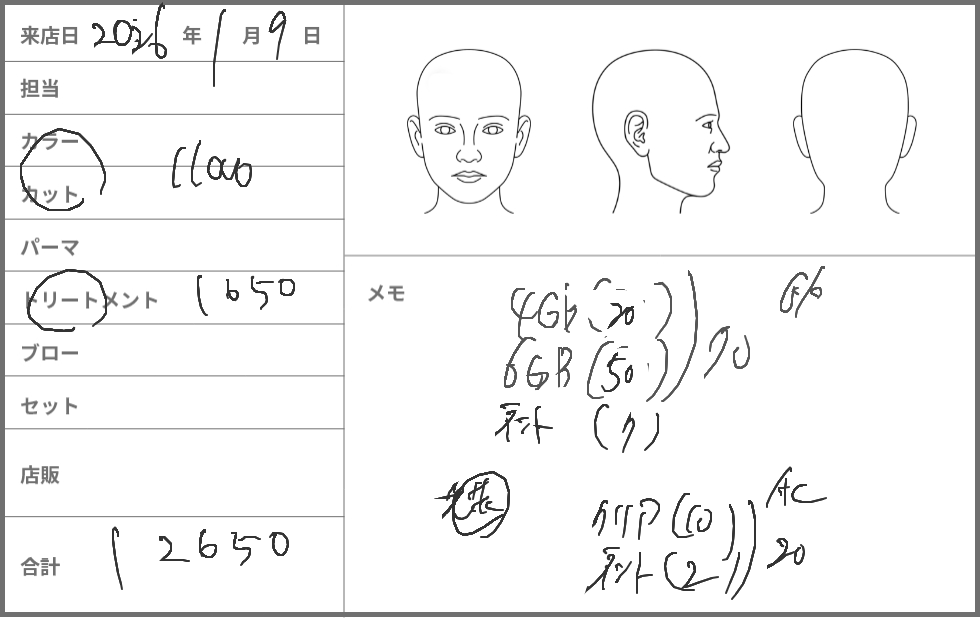 来店日 2026 年 1 月 9 日
担当
カラー
カット 11000
パーマ
トリートメント 1650
ブロー
セット
店販
合計 12650
メモ
4GB (20)
6GB (50) 70
(7)
クリア (10)
(2) 20